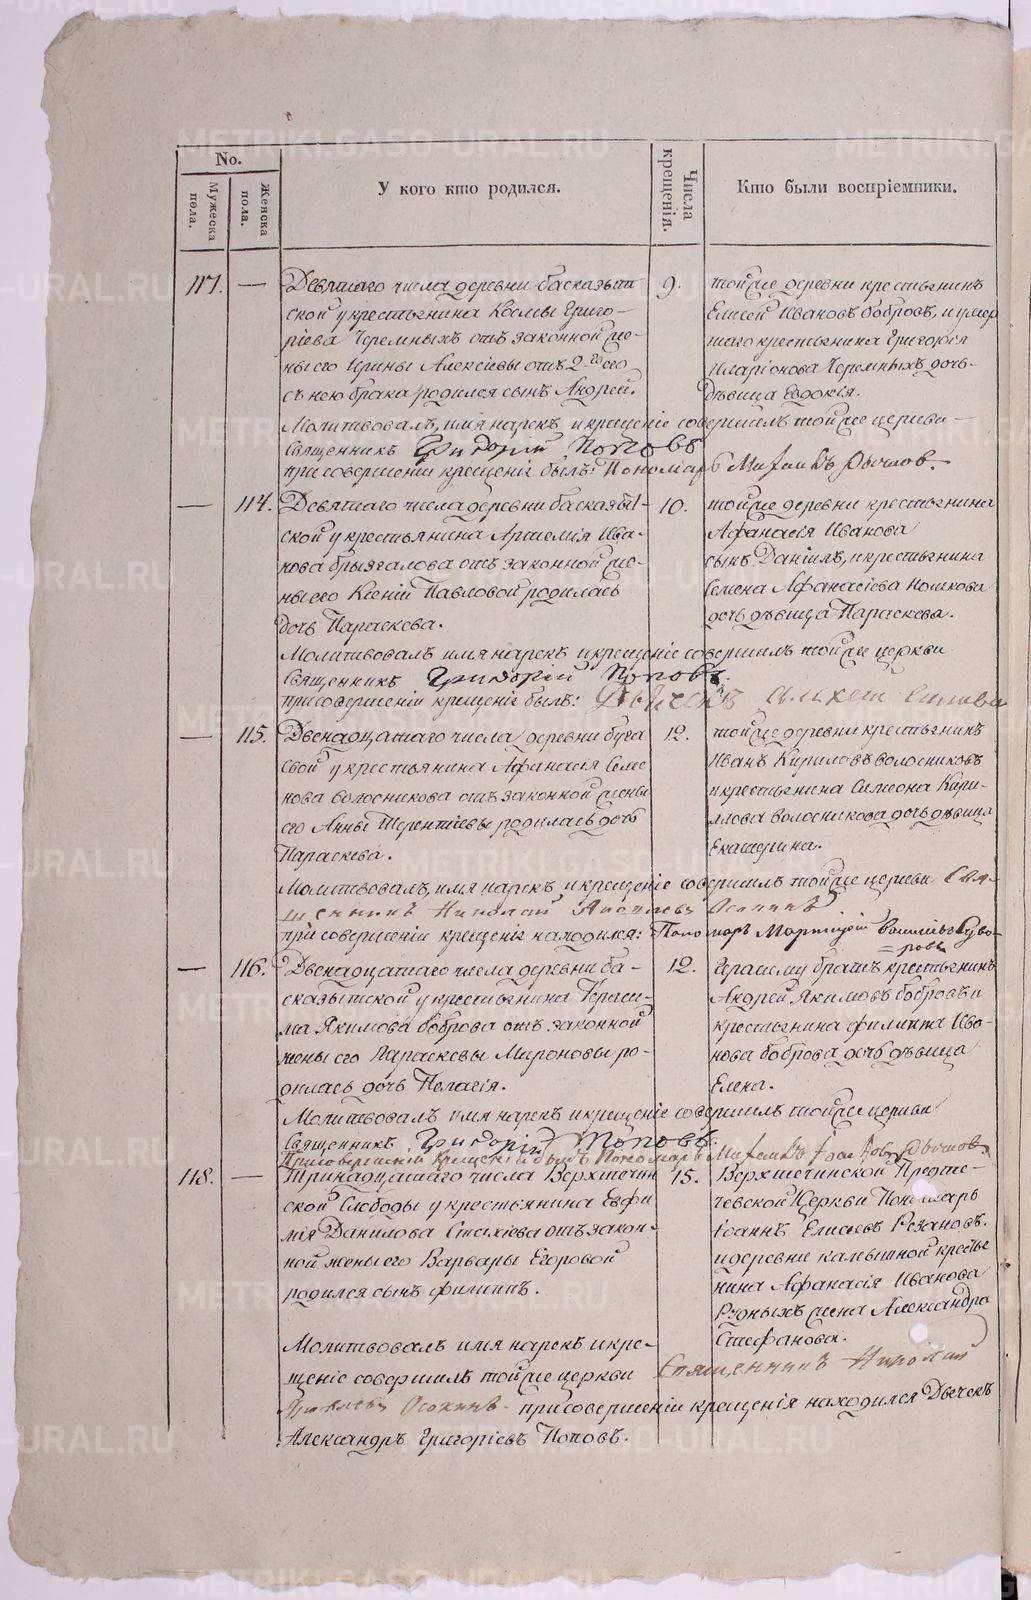 No.
Мужеска пола.
Женска пола.
У кого кто родился.
Числа крещенія.
Кто были воспріемники.
117. — Девятаго числа деревни басказыт-
ской у крестьянина Козмы Григо-
ріева Черемныхъ отъ законной же-
ны его Ирины Алексіевы отъ 2го его
съ нею брака родился сынъ Андрей.
9.
тойже деревни крестьянинъ
Елисей Ивановъ бобровъ, и умер
шаго крестьянина Григорія
Иларіонова Черемныхъ дочь-
дѣвица Евдокія.
Молитвовалъ, имя нарекъ и крещеніе совершилъ тойже церкви —
Священникъ Григорій Поповъ
при совершеніи крещенія былъ: Пономарь Михаилъ Рычков.
— 114. Девятаго числа деревни басказыт-
ской у крестьянина Артемія Ива-
нова брызгалова отъ законной же-
ны его Ксеніи Павловой родилась
дочь Параскева.
10.
тойже деревни крестьянина
Афанасія Иванова
сынъ Даніилъ, и крестьянина
Семена Афанасіева
дочь дѣвица Параскева.
Молитвовалъ имя нарекъ и крещеніе совершилъ тойже церкви
Священникъ Григорій Поповъ.
при совершеніи крещенія былъ: Дьячекъ
— 115. Двенадцатаго числа деревни буга
евой у крестьянина Афанасія Семе
нова волосникова отъ законной жены
его Анны Терентіевы родилась дочь
Параскева.
12.
тойже деревни крестьянинъ
Иванъ Кириловъ волосниковъ
и крестьянина Симеона Кири-
ллова волосникова дочь дѣвица
Екатерина.
Молитвовалъ, имя нарекъ и крещеніе совершилъ тойже церкви Свя-
щенникъ Николай Яковлевъ Осокинъ
при совершеніи крещенія находился: Пономарь
— 116. Двенадцатаго числа деревни ба-
сказытской у крестьянина Гераси-
ма Якимова боброва отъ законной
жены его Параскевы Мироновы ро-
дилась дочь Пелагія.
12.
Герасиму братъ крестьянинъ
Андрей Якимовъ бобровъ и
крестьянина филиппа Ива-
нова боброва дочь дѣвица
Елена.
Молитвовалъ имя нарекъ и крещеніе совершилъ тойже церкви
Священникъ Григорій Поповъ.
При совершеніи крещенія былъ Пономарь Михаилъ Рычковъ
118. — Тринадцатаго числа Верхтечин
ской Слободы у крестьянина Евфи
мія Данилова Стахіева отъ закон-
ной жены его Варвары Егоровой
родился сынъ филиппъ.
15.
Верхтечинской Предте-
чевской Церкви Пономарь
Іоаннъ Елисѣевъ Рѣзановъ.
и деревни камышной крестья
нина Афанасія Иванова
Рудныхъ жена Александра
Стефановск.
Молитвовалъ имя нарекъ и кре-
щеніе совершилъ тойже церкви Священникъ Николай
Яковлевъ Осокинъ при совершеніи крещенія находился Дьячекъ
Александръ Григоріевъ Поповъ.